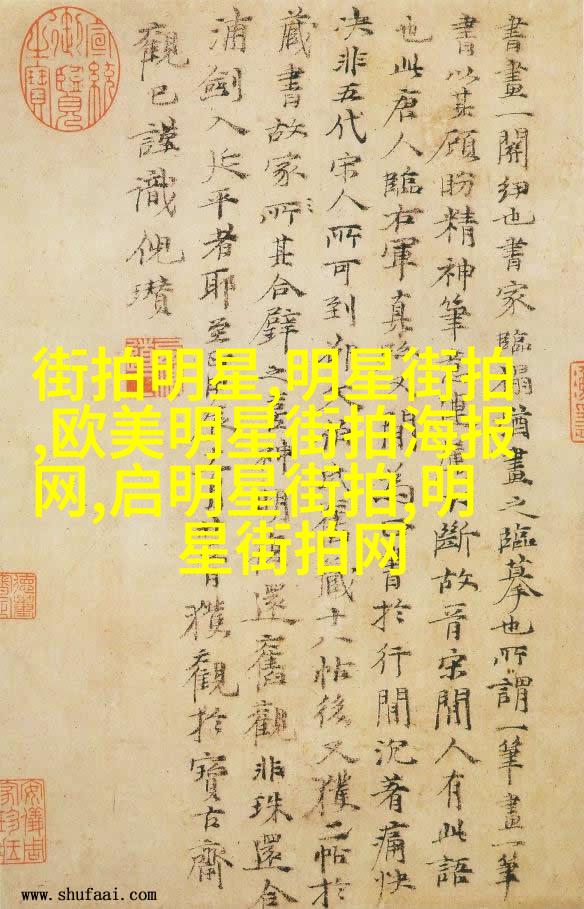 書畫一關紐也書家臨搨猶畫之臨摹也所謂一筆畫一筆
書以其顧盼精神筆意不斷故晉宋間人有此語
也此唐人臨右軍真於行間沉著痛快
决非五代宋人所可到藏十八帖後又獲二帖於
藏書故家所其合璧之神明還舊觀非珠還合
浦劍入延平者耶至獲觀於寶古齋
觀已謹識倪瓚
宣統御覽之寶
街拍明星,明星街拍
,欧美明星街拍海报
网,启明星街拍,明
星街拍网
www.shufaai.com